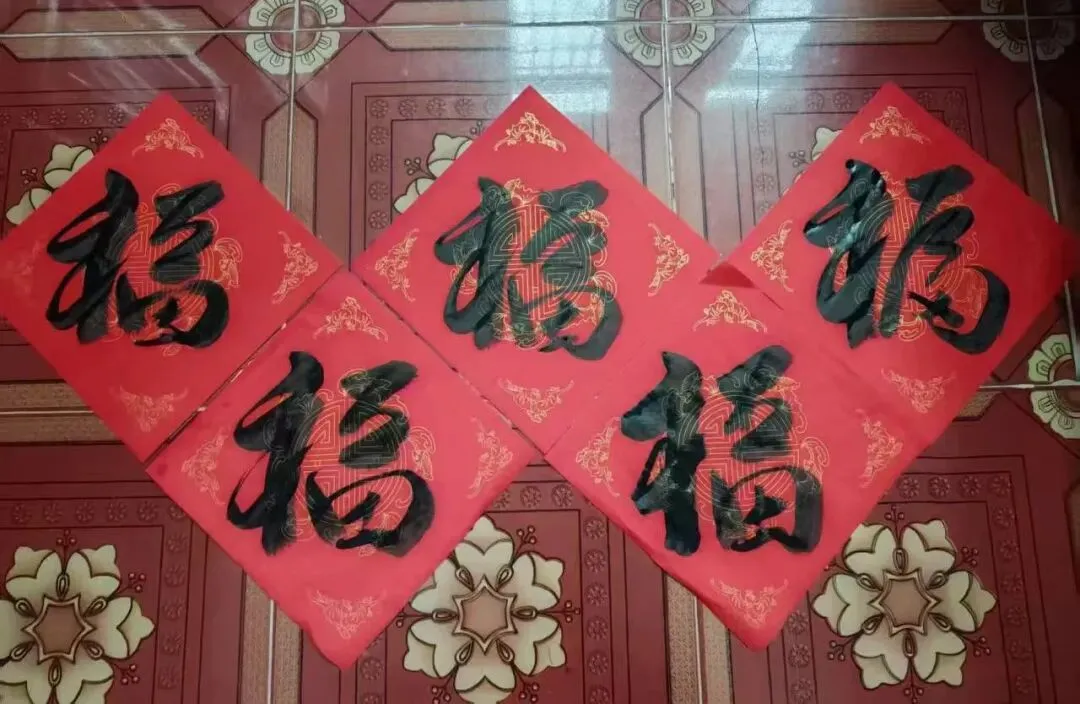 福 福 福
福 福